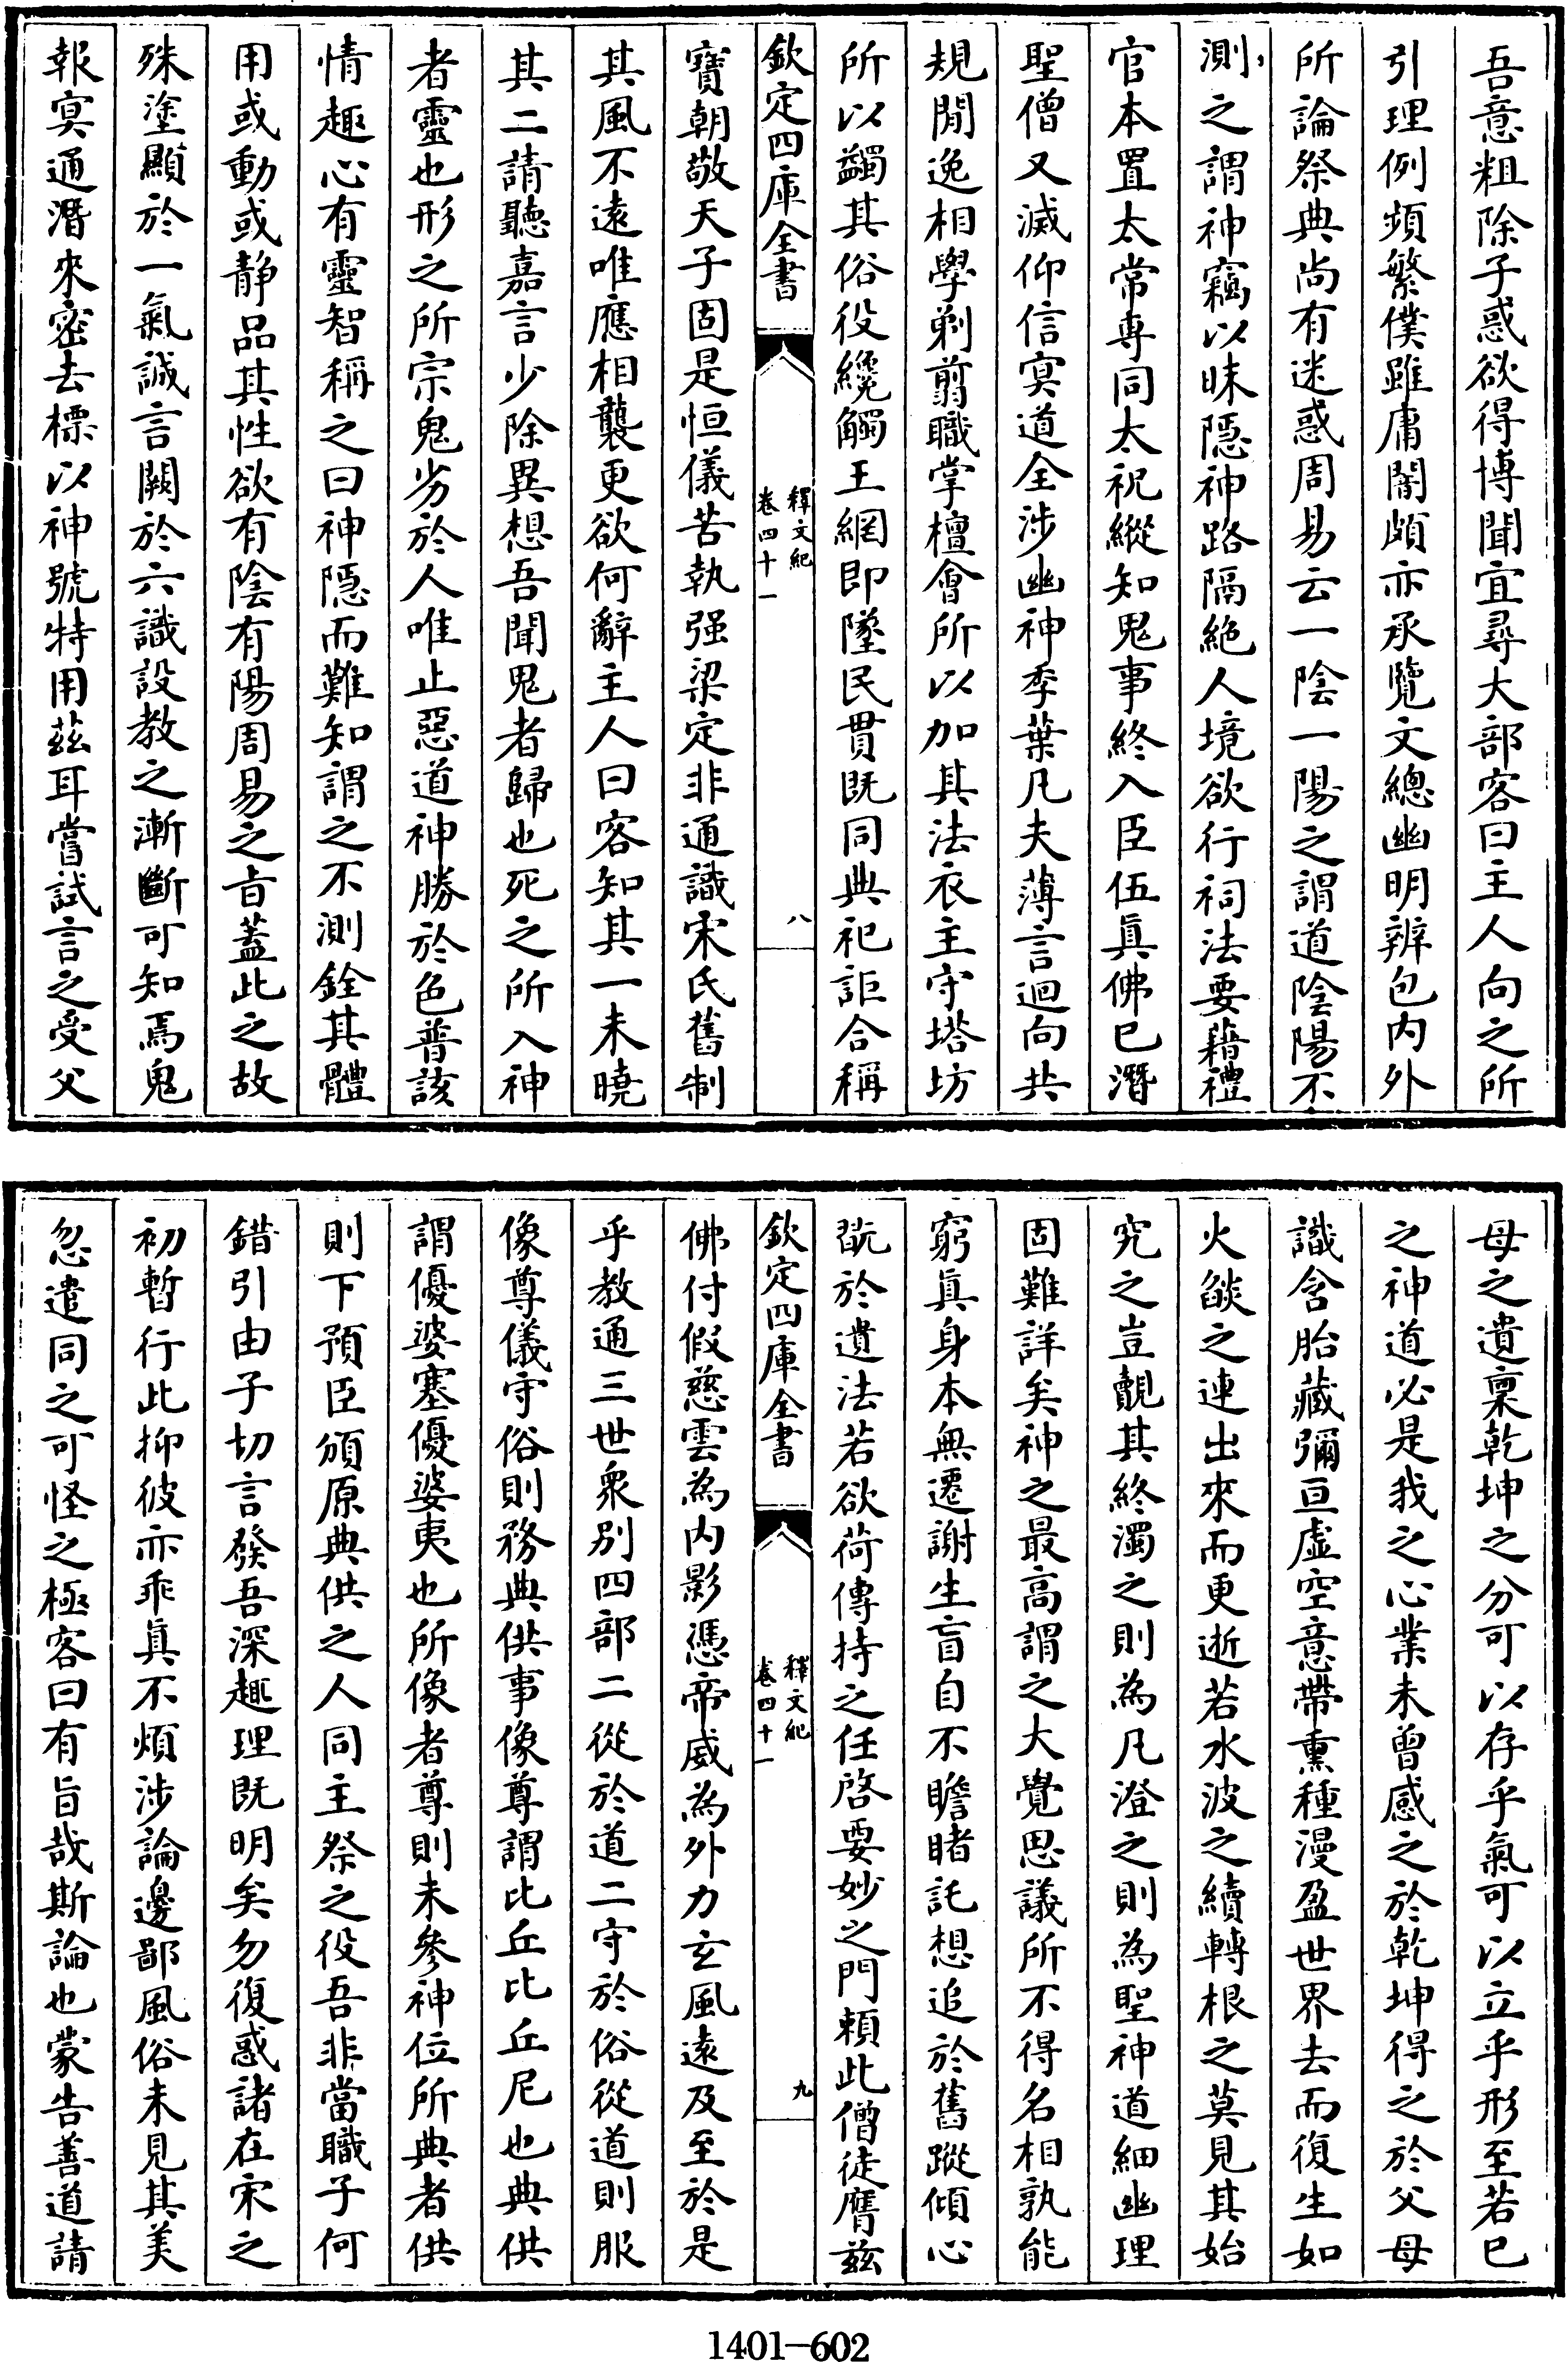 吾意粗除子惑欲得博聞宜尋大部客曰主人向之所
引理例頻繁僕雖庸闇頗亦承覽文總幽明辨包内外
所論祭典尚有迷惑周易云一陰一陽之謂道陰陽不
測之謂神竊以昧隱神路隔絶人境欲行祠法要藉禮
官本置太常専同太祝縱知鬼事終入臣伍眞佛已潛
聖僧又滅仰信冥道全涉幽神季葉凡夫薄言迴向共
規閒逸相學剃翦職掌檀會所以加其法衣主守塔坊
所以蠲其俗役纔觸王網即墜民貫既同典祀詎合稱
欽定四庫全書
釋文紀
卷四十一
八
寶朝敬天子固是恒儀苦執强梁定非通識宋氏舊制
其風不逺唯應相襲更欲何辭主人曰客知其一未曉
其二請聽嘉言少除異想吾聞鬼者歸也死之所入神
者靈也形之所宗鬼劣於人唯止惡道神勝於色普該
情趣心有靈智稱之曰神隱而難知謂之不測銓其體
用或動或静品其性欲有陰有陽周易之㫖蓋此之故
殊塗顯於一氣誠言闕於六識設教之漸斷可知焉鬼
報㝠通潛來密去標以神號特用茲耳嘗試言之受父
母之遺稟乾坤之分可以存乎氣可以立乎形至若已
之神道必是我之心業未曾感之於乾坤得之於父母
識含胎藏彌亘虚空意帶熏種漫盈世界去而復生如
火燄之連出來而更逝若水波之續轉根之莫見其始
究之豈覿其終濁之則為凡澄之則為聖神道細幽理
固難詳矣神之最高謂之大覺思議所不得名相孰能
窮眞身本無遷謝生盲自不瞻睹託想追於舊蹤傾心
翫於遺法若欲荷傳持之任啓要妙之門頼此僧徒膺茲
欽定四庫全書
釋文紀
卷四十一
九
佛付假慈雲為内影憑帝威為外力玄風逺及至於是
乎教通三世衆别四部二從於道二守於俗從道則服
像尊儀守俗則務典供事像尊謂比丘比丘尼也典供
謂優婆塞優婆夷也所像者尊則未參神位所典者供
則下預臣頒原典供之人同主祭之役吾非當職子何
錯引由子切言發吾深趣理既明矣勿復惑諸在宋之
初暫行此抑彼亦乖眞不煩涉論邊鄙風俗未見其美
忽遣同之可怪之極客曰有旨哉斯論也蒙告善道請
1401—602